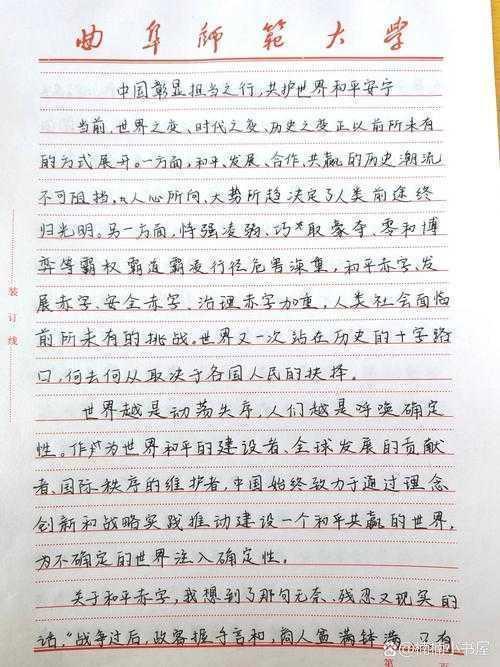 曲阜师范大学
中国彰显担当之行,共护世界和平安宁
当前,世界之变、时代之变、历史之变正以前所未有
的方式展开。一方面,和平、发展、合作、共赢的历史潮流
不可阻挡,人心所向、大势所趋决定了人类前途终
归光明。另一方面,恃强凌弱、巧取豪夺、零和博
弈等霸权霸道霸凌行径危害深重,和平赤字、发
展赤字、安全赤字、治理赤字加重,人类社会面临
前所未有的挑战。世界又一次站在历史的十字路
口,何去何从取决于各国人民的抉择。
世界越是动荡失序,人们越是呼唤确定
性。作为世界和平的建设者、全球发展的贡献
者、国际秩序的维护者,中国始终致力于通过理念
创新和战略实践推动建设一个和平共赢的世界,
为不确定的世界注入确定性。
关于和平赤字,我想到了那句无奈、残忍又现实的
话,“战争过后,政客握手言和,商人富满钵满,只有
装订线
第 页
小书屋